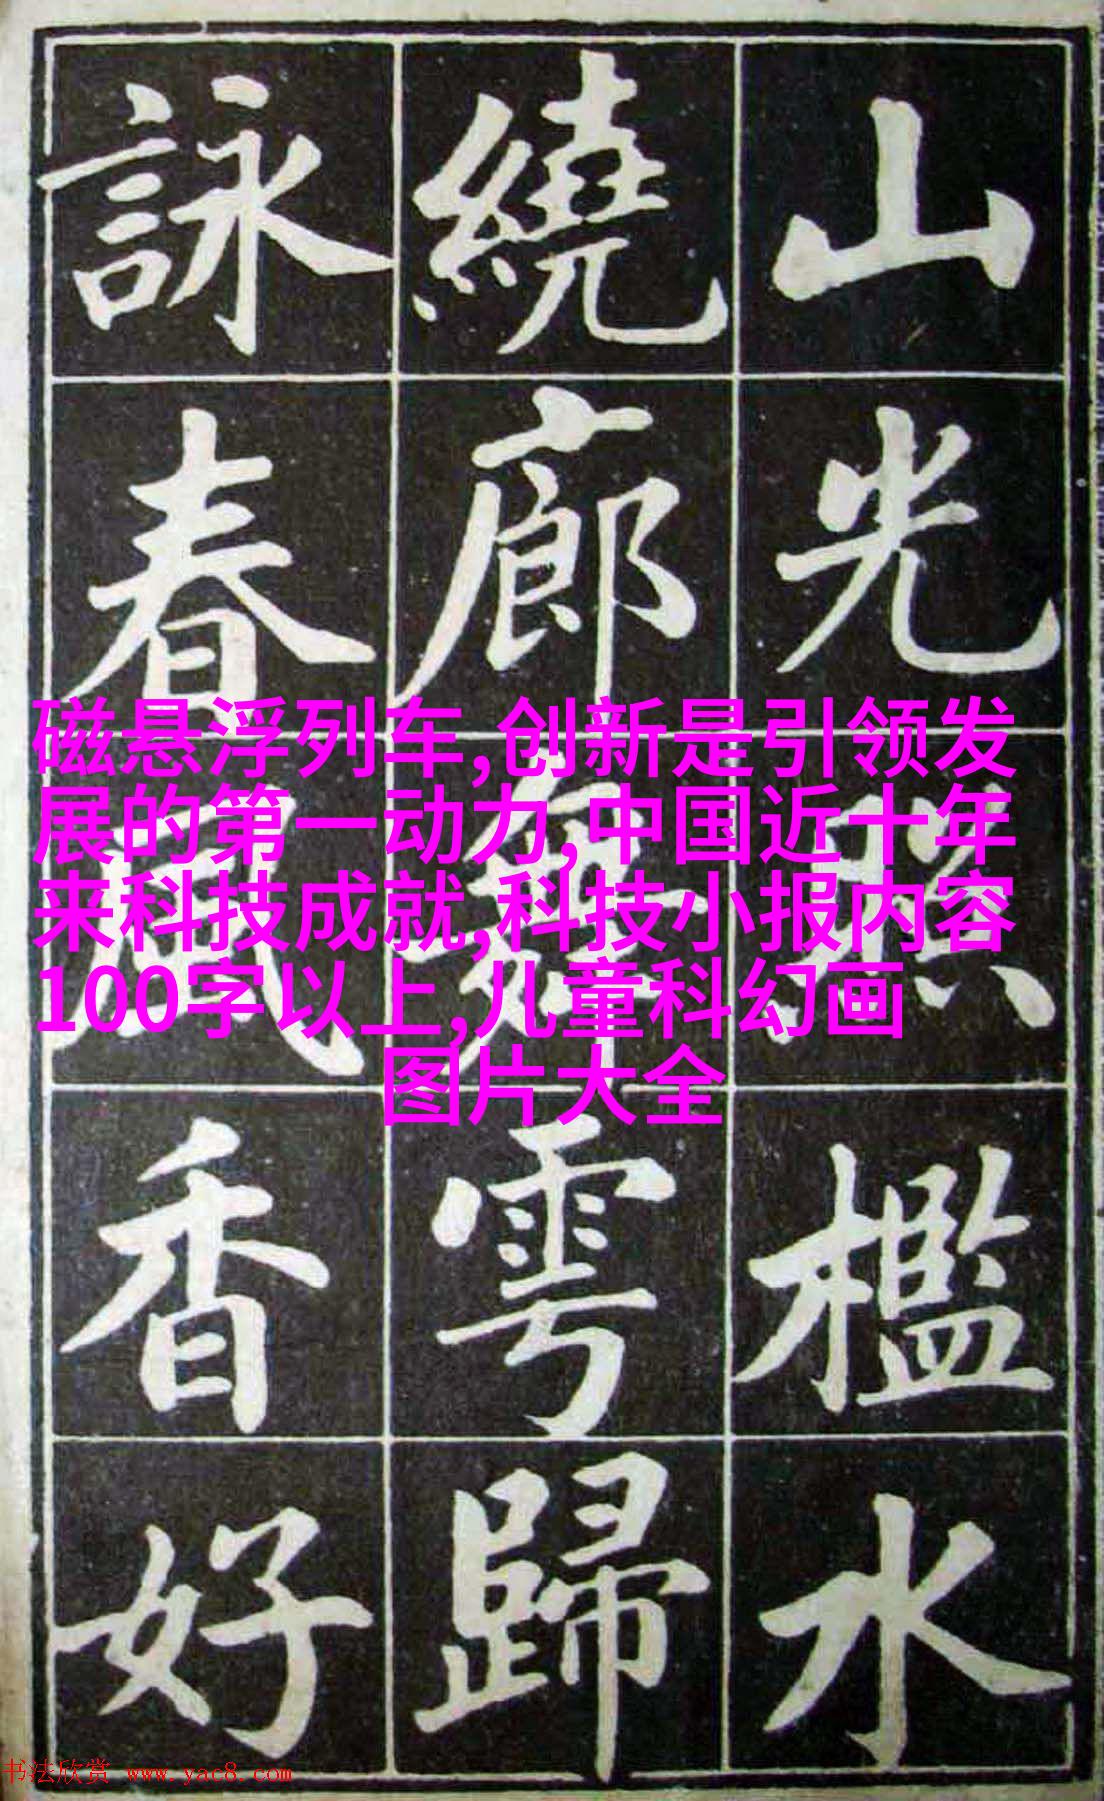 山光照檻水
繞廊舞雩歸
詠春風香好
磁悬浮列车,创新是引领发
展的第一动力,中国近十年
来科技成就,科技小报内容
100字以上,儿童科幻画
图片大全
书法欣赏 www.yac8.com